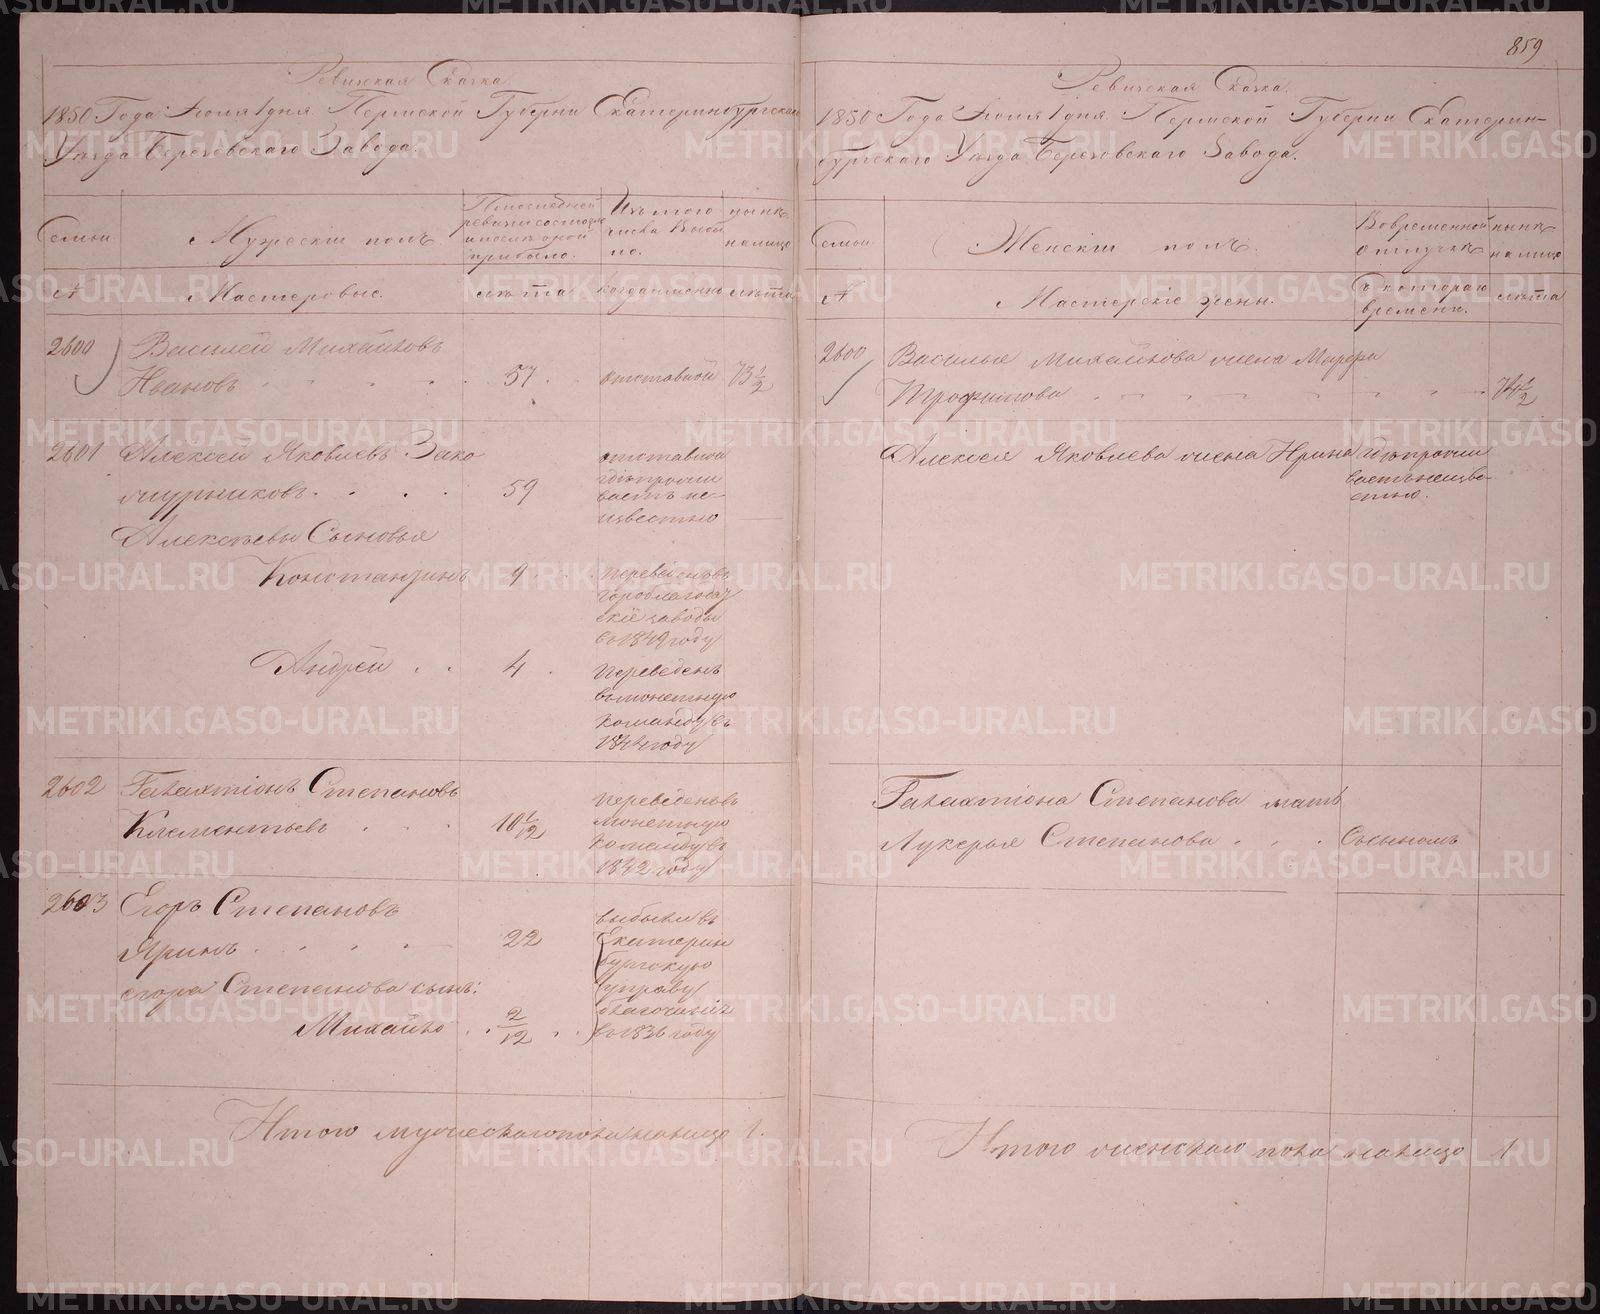 859
Ревизская Сказка
1850 Года Июля 1 дня Пермской Губернии Екатеринбургскаго
Уѣзда Березовскаго Завода.
Семьи
Мужескій полъ
По последней
ревизіи состояло
и после оной
прибыло.
Изъ того
числа выбы
ло.
Нынѣ
на лицо
№
Мастеровые.
лѣта
когда именно
лѣта
2600
Василей Михайловъ
Ивановъ
57
отставной
73 1/2
2601
Алексей Яковлевъ Зако
мурниковъ
59
отставной
гдѣ прожи
ваетъ не-
известно
Алексеевы Сыновья
Константинъ
9
переведенъ въ
Гороблагодат
скіе заводы
в 1849 году
Андрей
4
переведенъ
въ монетную
команду въ
1844 году
2602
Галахтіонъ Степановъ
Клементьевъ
10 1/12
переведенъ въ
монетную
команду въ
1842 году
2603
Егоръ Степановъ
Яринъ
22
выбыли въ
Екатерин
бургскую
управу
благочинія
въ 1836 году
егора Степанова сынъ:
Михайло
2/12
Итого мужескаго пола на лицо 1.
Ревизская Сказка.
1850 Года Июля 1 дня. Пермской Губернии Екатерин-
бургскаго Уѣзда Березовскаго Завода.
Семьи
Женскій полъ.
Во временной
отлучкѣ
нынѣ
на лицо
№
Мастерскіе жены.
Съ котораго
времени.
лѣта
2600
Василья Михайлова жена Марфа
Трофимова
74 1/2
Алексея Яковлева жена Ирина
гдѣ прожи
ваетъ неизве-
стно.
Галахтіона Степанова мать
Лукерья Степанова
Съ сыномъ
Итого женскаго пола на лицо 1
METRIKI.GASO-URAL.RU